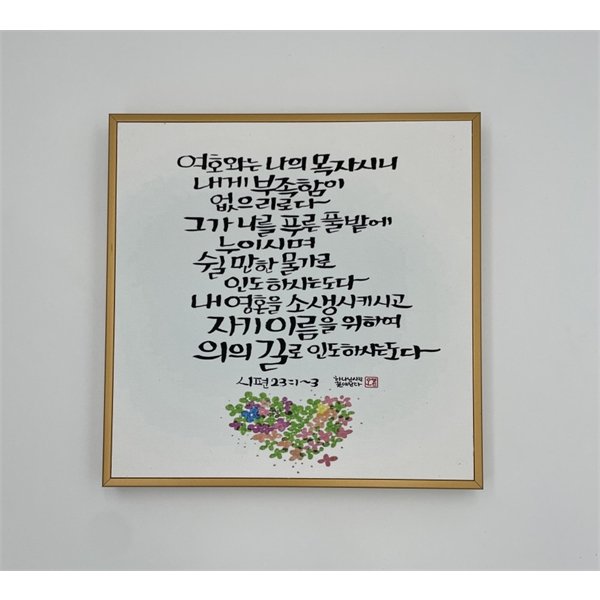 여호와는 나의 목자시니
내게 부족함이
없으리로다
그가 나를 푸른 풀밭에
누이시며
쉴 만한 물가로
인도하시는도다
내 영혼을 소생시키시고
자기 이름을 위하여
의의 길로 인도하시는도다
시편 23:1~3